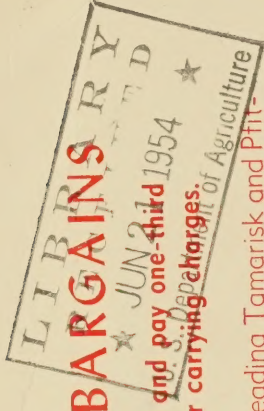 LIBRARY
RECEIVED
★ JUN 21 1954 ★
U. S. Department of Agriculture
BARGAINS
and pay one-third
r carrying charges.
eading Tamarisk and Pfit-